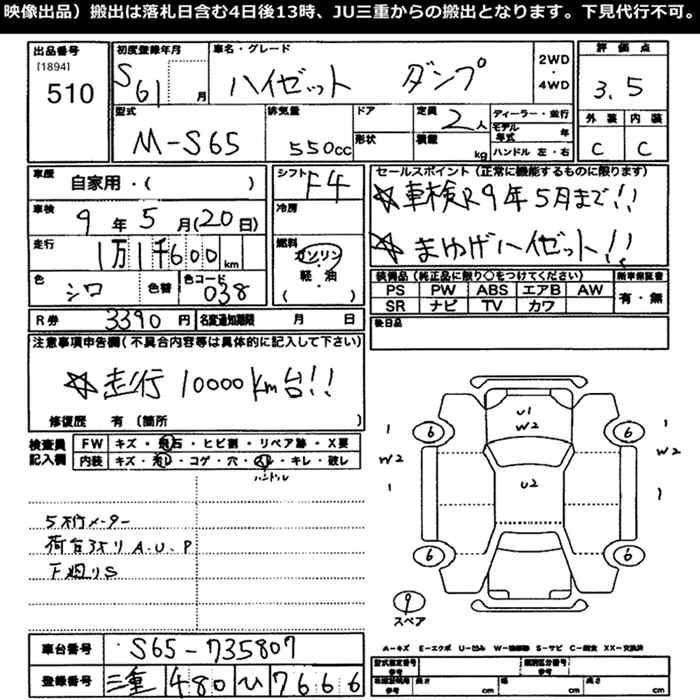 映像出品）搬出は落札日含む4日後13時、JU三重からの搬出となります。下見代行不可。
出品番号 初度登録年月 車名・グレード 2WD ・ 4WD 評価点
[1894]
510 S61 月 ハイゼット ダンプ 3.5
型式 排気量 ドア 定員 2人 ディーラー・並行 外装 内装
M-S65 550cc 形状 積載 kg モデル年式 年 C C
ハンドル 左・右
車歴 シフト F4 セールスポイント(正常に機能するものに限ります)
自家用・( ) ☆車検R9年5月まで!!
車検 9年5月(20日) 冷房
走行 1万1千600km 燃料 ☆まゆげハイゼット!!
ガソリン
軽・油
( )
色 シロ 色替 色コード 038
装備品(純正品に限り○をつけてください) 新車保証書
PS PW ABS エアB AW 有・無
SR ナビ TV カワ
R券 3390円 名変通知期限 月 日 後日品
注意事項申告欄(不具合内容等は具体的に記入して下さい)
☆走行10000km台!!
修復歴 有(箇所 )
検査員 FW キズ・飛石・ヒビ割・リペア跡・X要
記入欄 内装 キズ・汚レ・コゲ・穴・スレ・キレ・破レ
ハンドル
5桁メーター
荷台スリA.U.P
下廻りS
U1
W2
6 6
1 1
W2 W2
1 1
U2
6 6
9
スペア
A-キズ E-エクボ U-凹み W-補修跡 S-サビ C-腐食 XX-交換済
車台番号 S65-735807
登録番号 三重 480 ひ 7666
型式指定番号 参考 類別区分番号 参考
車庫証明用 参考 長さ cm 幅 cm 高さ cm